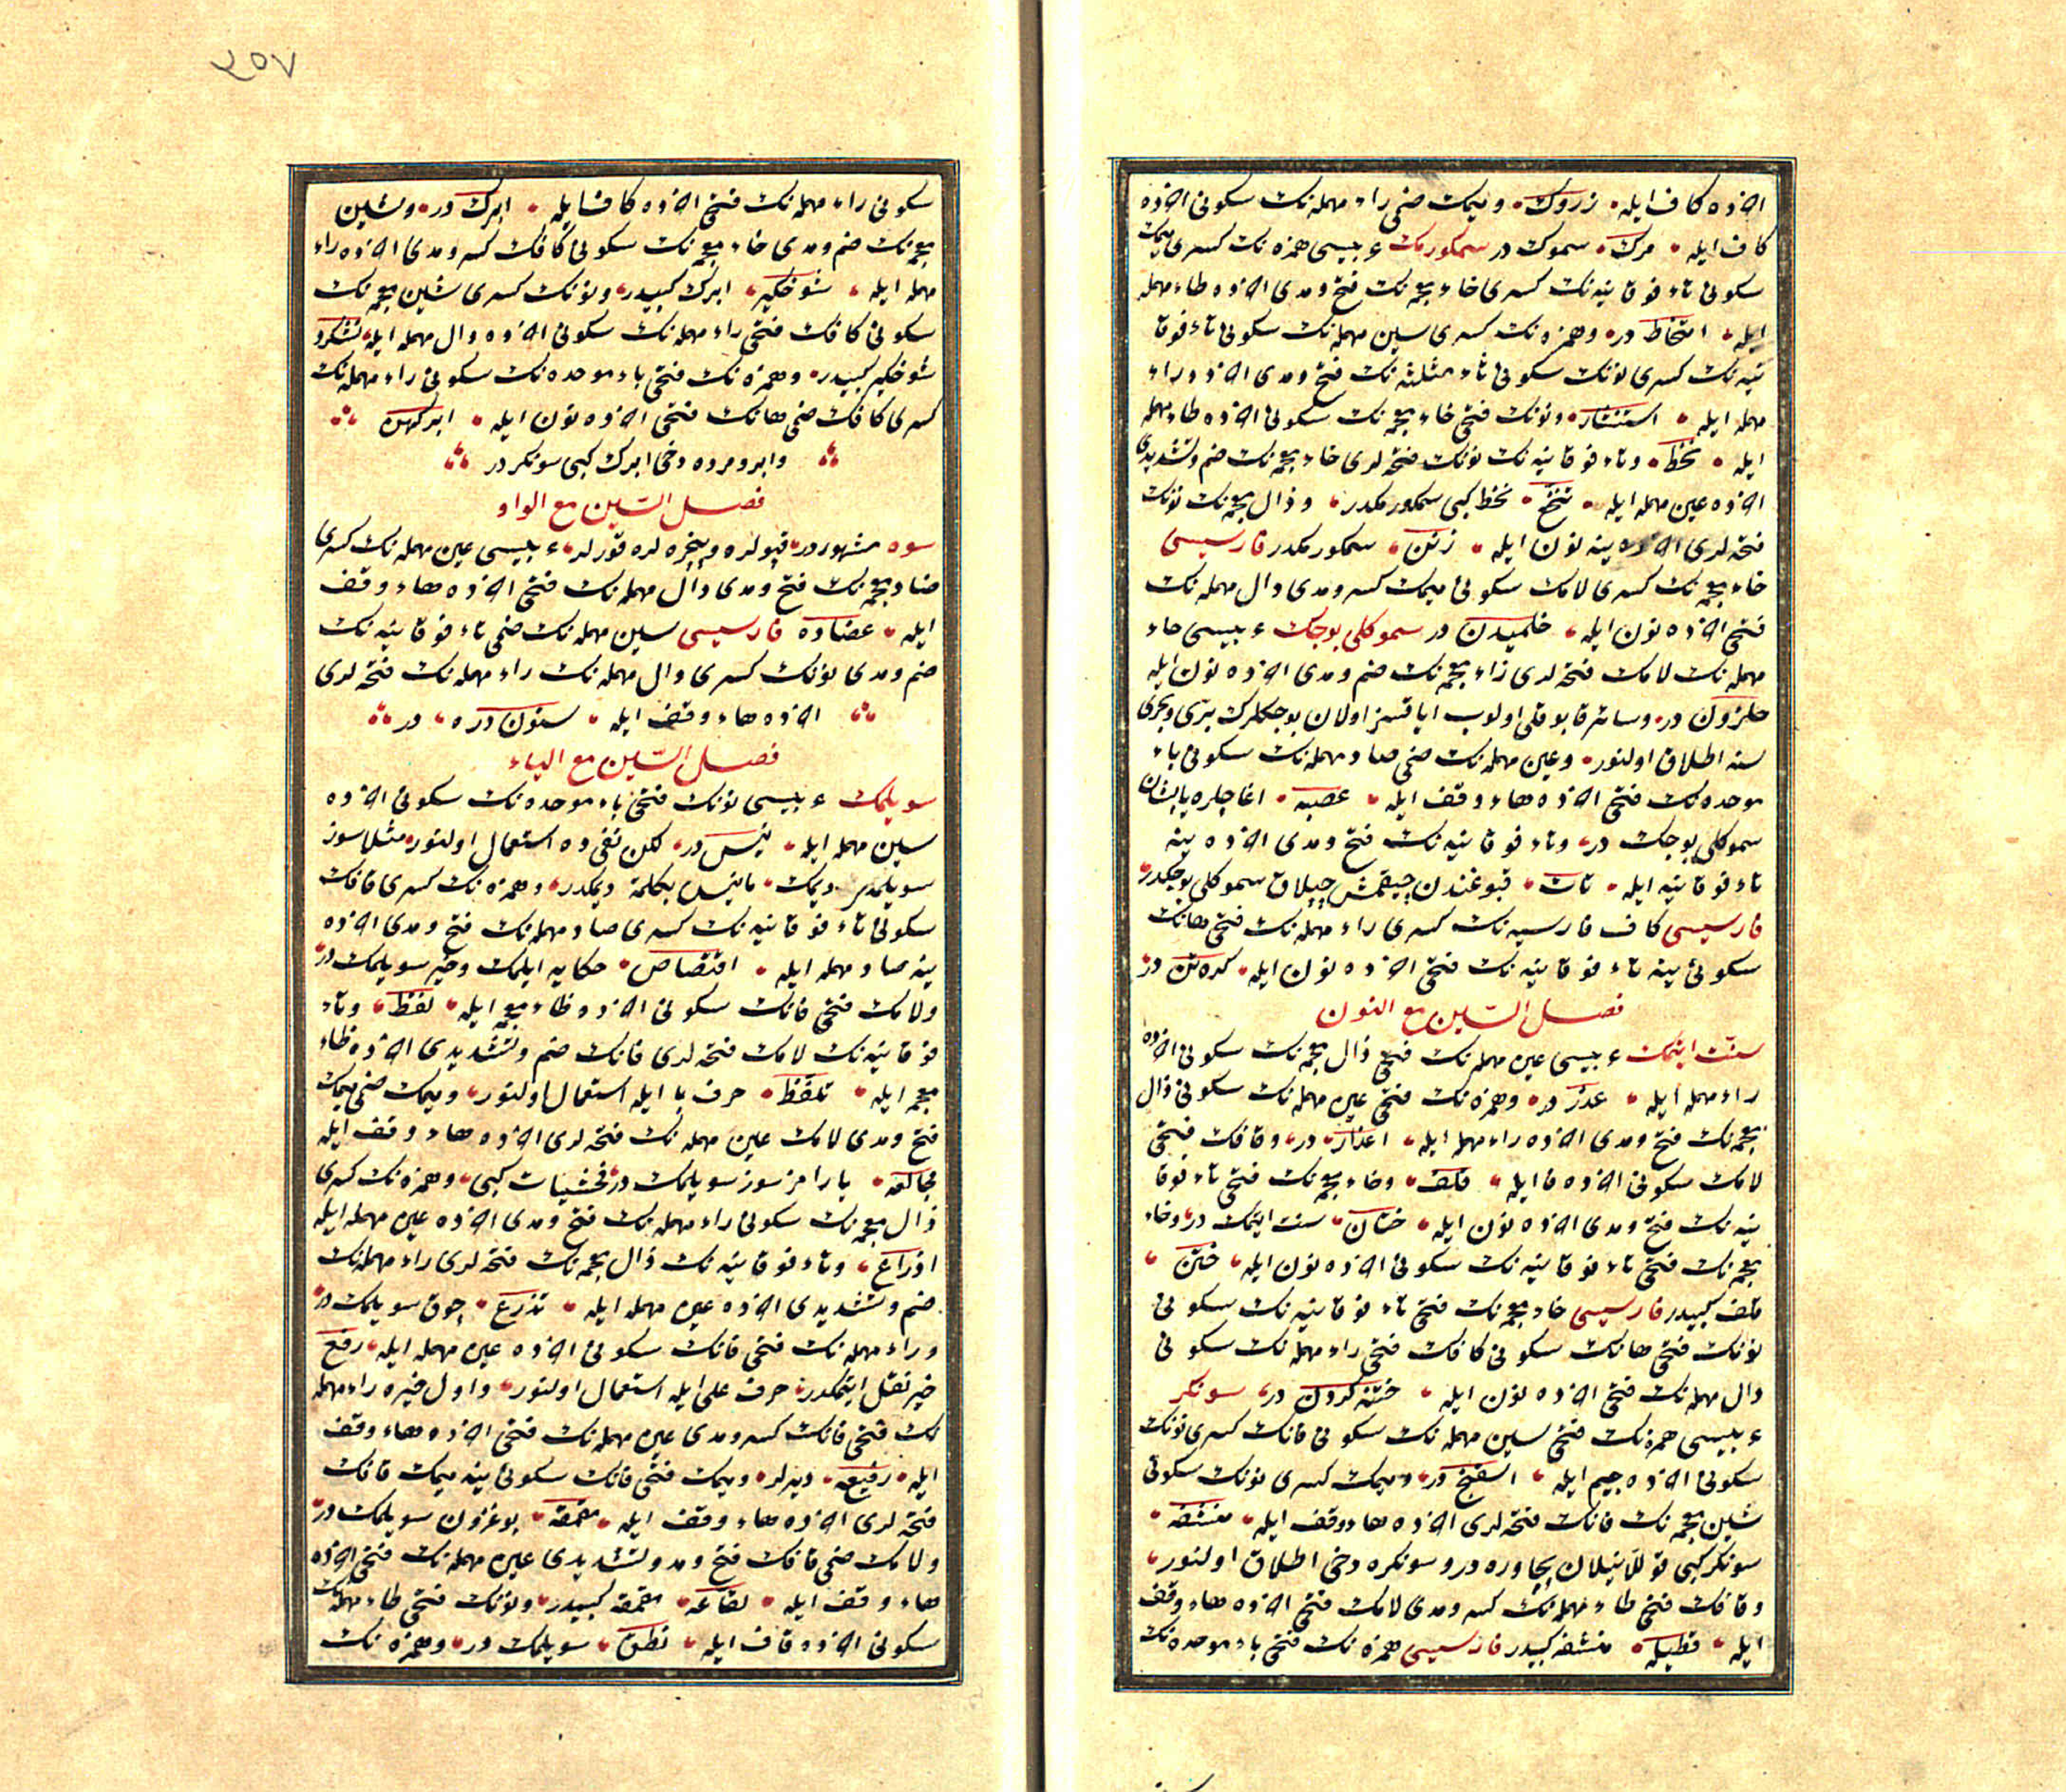 اخرده كاف ايله زروك وميمك ضمى راء مهمله نك سكونى اخرده
كاف ايله مرك سموك در سمكورمك عربيسى همزه نك كسرى ميمك
سكونى تاء فوقانيه نك كسرى خاء معجمه نك فتح ومدى اخرده طاء مهمله
ايله امتخاط در وهمزه نك كسرى سين مهمله نك سكونى تاء فوقا
نيه نك كسرى نونك سكونى ثاء مثلثه نك فتح ومدى اخرده راء
مهمله ايله استنثار ونونك فتحى خاء معجمه نك سكونى اخرده طاء مهمله
ايله نخط وتاء فوقانيه نك نونك فتحه لرى خاء معجمه نك ضم وتشديدى
اخرده عين مهمله ايله تنخع نخط كبى سمكورمكدر وذال معجمه نك نونك
فتحه لرى اخرده ينه نون ايله ذنن سمكورمكدر فارسيسى
خاء معجمه نك كسرى لامك سكونى ميمك كسر ومدى دال مهمله نك
فتحى اخرده نون ايله خلميدن در سموكلى بوجك عربيسى حاء
مهمله نك لامك فتحه لرى زاء معجمه نك ضم ومدى اخرده نون ايله
حلزون در وسائر قابوقلى اولوب اياقسز اولان بوجكلرك برى وبحرى
سنه اطلاق اولنور وعين مهمله نك ضمى صاد مهمله نك سكونى باء
موحده نك فتحى اخرده هاء وقف ايله عصبه اغاجلره ياپشان
سموكلى بوجك در وتاء فوقانيه نك فتح ومدى اخرده ينه
تاء فوقانيه ايله تات قبوغندن چيقمش چپلاق سموكلى بوجكدر
فارسيسى كاف فارسيه نك كسرى راء مهمله نك فتحى هانك
سكونى ينه تاء فوقانيه نك فتحى اخرده نون ايله كره تن در
فصل السين مع النون
سنت ايتمك عربيسى عين مهمله نك فتحى ذال معجمه نك سكونى اخرده
راء مهمله ايله عذر در وهمزه نك فتحى عين مهمله نك سكونى ذال
معجمه نك فتح ومدى اخرده راء مهمله ايله اعذار در وقافك فتحى
لامك سكونى اخرده فا ايله قلف وخاء معجمه نك فتحى تاء فوقا
نيه نك فتح ومدى اخرده نون ايله ختان سنت ايتمك در وخاء
معجمه نك فتحى تاء فوقانيه نك سكونى اخرده نون ايله ختن
قلف كبيدر فارسيسى خاء معجمه نك فتحى تاء فوقانيه نك سكونى
نونك فتحى هانك سكونى كافك فتحى راء مهمله نك سكونى
دال مهمله نك فتحى اخرده نون ايله ختنه كردن در سونكر
عربيسى همزه نك فتحى سين مهمله نك سكونى فانك كسرى نونك
سكونى اخرده جيم ايله اسفنج در وميمك كسرى نونك سكونى
شين معجمه نك فانك فتحه لرى اخرده هاء وقف ايله منشفه
سونكر كبى قوللانيلان پچاوره در وسونكره دخى اطلاق اولنور
وقافك فتحى طاء مهمله نك كسر ومدى لامك فتحى اخرده هاء وقف
ايله قطيله منشفه كبيدر فارسيسى همزه نك فتحى باء موحده نك
سكونى راء مهمله نك فتحى اخرده كاف ايله ابرك در وشين
معجمه نك ضم ومدى خاء معجمه نك سكونى كافك كسر ومدى اخرده راء
مهمله ايله شوخكير ابرك كبيدر ونونك كسرى شين معجمه نك
سكونى كافك فتحى راء مهمله نك سكونى اخرده دال مهمله ايله نشكرد
شوخكير كبيدر وهمزه نك فتحى باء موحده نك سكونى راء مهمله نك
كسرى كافك ضمى هانك فتحى اخرده نون ايله ابركهن
وابر ومرده دخى ابرك كبى سونكر در
فصل السين مع الواو
سوه مشهور در قپولره وپنجره لره قورلر عربيسى عين مهمله نك كسرى
ضاد معجمه نك فتح ومدى دال مهمله نك فتحى اخرده هاء وقف
ايله عضاده فارسيسى سين مهمله نك ضمى تاء فوقانيه نك
ضم ومدى نونك كسرى دال مهمله نك راء مهمله نك فتحه لرى
اخرده هاء وقف ايله ستون دره در
فصل السين مع الياء
سويلمك عربيسى نونك فتحى باء موحده نك سكونى اخرده
سين مهمله ايله نبس در لكن نفى ده استعمال اولنور مثلا سوز
سويلمدى ديمك ما نبس بكلمة ديمكدر وهمزه نك كسرى قافك
سكونى تاء فوقانيه نك كسرى صاد مهمله نك فتح ومدى اخرده
ينه صاد مهمله ايله اقتصاص حكايه ايلمك وخبر سويلمك در
ولامك فتحى فانك سكونى اخرده ظاء معجمه ايله لفظ وتاء
فوقانيه نك لامك فتحه لرى فانك ضم وتشديدى اخرده ظاء
معجمه ايله تلفظ حرف با ايله استعمال اولنور وميمك ضمى ميمك
فتح ومدى لامك عين مهمله نك فتحه لرى اخرده هاء وقف ايله
يارامز سوز سويلمك در فحشيات كبى وهمزه نك كسرى
ذال معجمه نك سكونى راء مهمله نك فتح ومدى اخرده عين مهمله ايله
اذراع وتاء فوقانيه نك ذال معجمه نك فتحه لرى راء مهمله نك
ضم وتشديدى اخرده عين مهمله ايله تذرع چوق سويلمك در
وراء مهمله نك فتحى فانك سكونى اخرده عين مهمله ايله رفع
خبر نقل ايتمكدر حرف على ايله استعمال اولنور واول خبره راء مهمله
نك فتحى فانك كسر ومدى عين مهمله نك فتحى اخرده هاء وقف
ايله رفيعه ديرلر وميمك فتحى قافك سكونى ينه ميمك قافك
فتحه لرى اخرده هاء وقف ايله مقمقه بوغزدن سويلمك در
ولامك ضمى قافك فتح ومد وتشديدى عين مهمله نك فتحى اخرده
هاء وقف ايله لقاعه مقمقه كبيدر ونونك فتحى طاء مهمله نك
سكونى اخرده قاف ايله نطق سويلمك در وهمزه نك